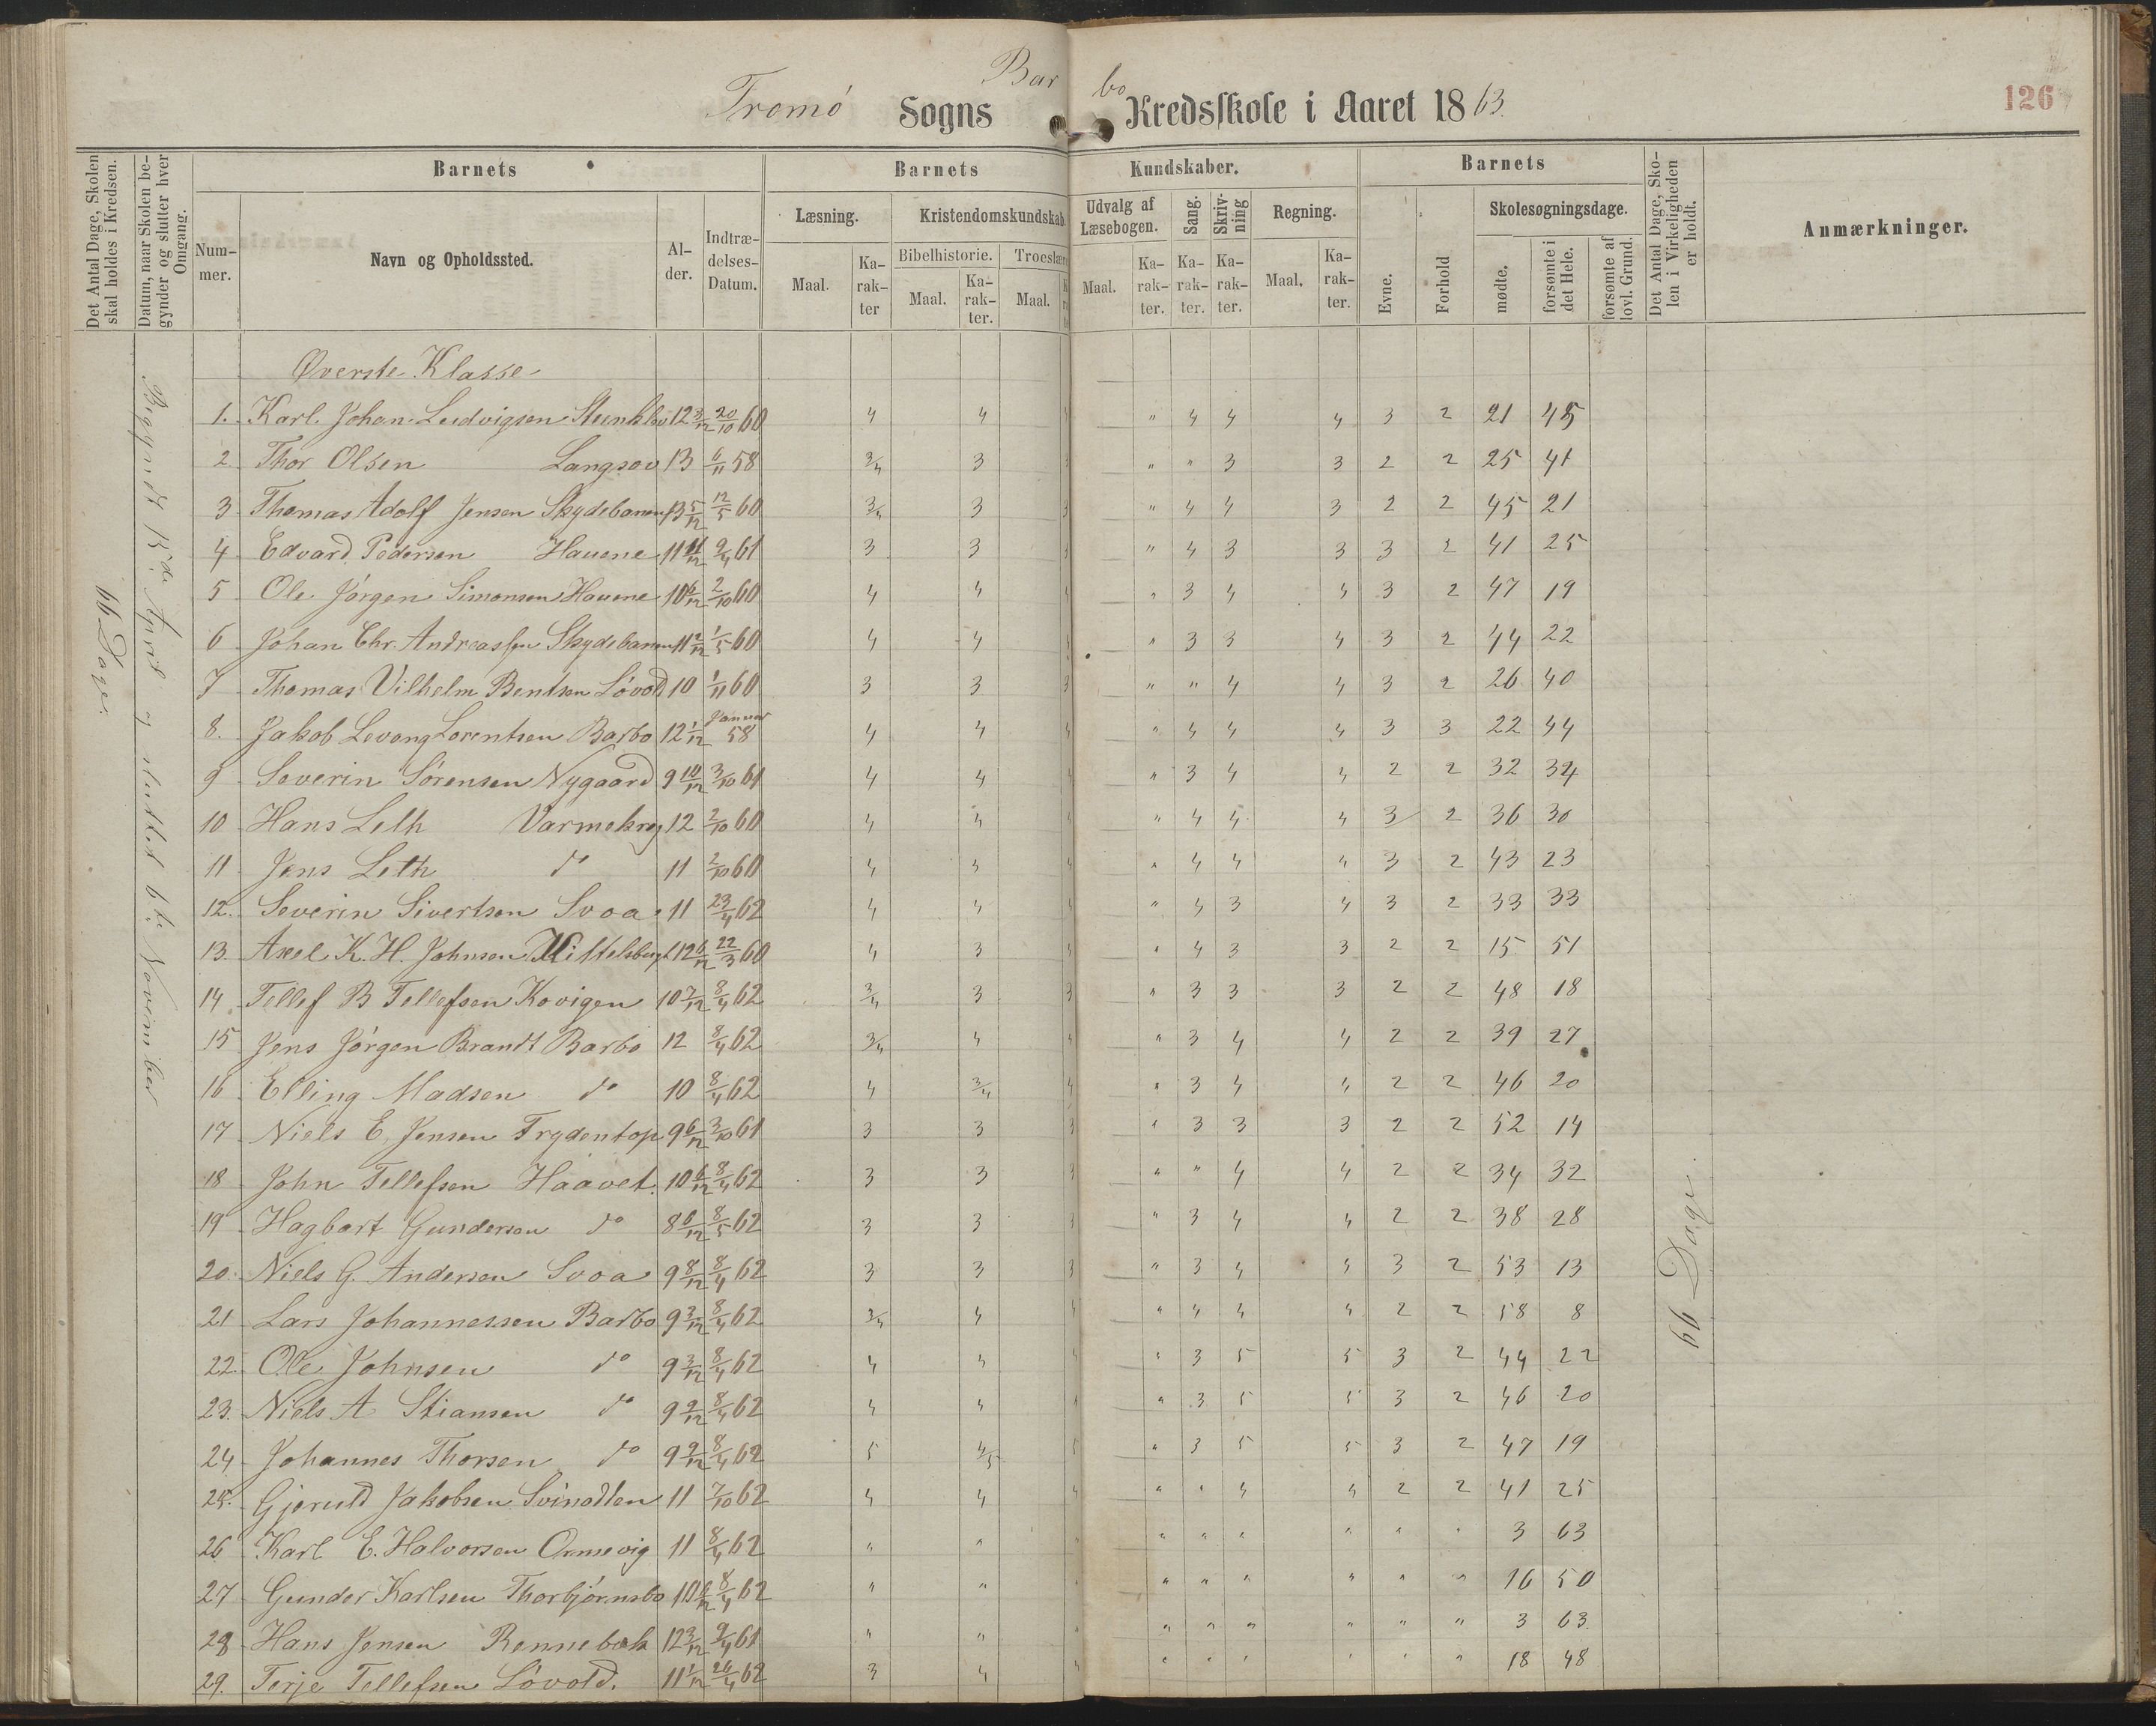 Tromø Sogns Barbo Kredsskole i Aaret 1863.
126
Det Antal Dage, Skolen skal holdes i Kredsen.
Datum, naar Skolen begynder og slutter hver Omgang.
Barnets
Barnets Kundskaber.
Barnets
Det Antal Dage, Skolen i Virkeligheden er holdt.
Anmærkninger.
Nummer.
Navn og Opholdssted.
Alder.
Indtrædelses-Datum.
Læsning.
Kristendomskundskab
Udvalg af Læsebogen.
Sang.
Skrivning
Regning.
Evne.
Forhold
Skolesøgningsdage.
Bibelhistorie.
Troeslære
Maal. Karakter
Maal. Karakter.
Maal.
Maal. Karakter. Karakter. Karakter. Maal. Karakter.
mødte. forsømte i det Hele. forsømte af lovl. Grund.
66 Dage.
Begyndt 13de April og sluttet 6te November
66 Dage.
Øverste Klasse
1. Karl Johan Ludvigsen 12 3/12 20/10 60 4 4 4 " 4 4 4 3 2 21 45
2 Thor Olsen Langsæv 13 6/11 58 3/4 3 " " 3 3 2 2 25 41
3 Thomas Adolf Jensen Skydebanen 13 5/12 12/5 60 3/4 3 3 " 4 4 3 2 2 45 21
4 Edvard Pedersen Havene 11 11/12 9/4 61 3 3 " 4 3 3 3 2 41 25
5 Ole Jörgen Simonsen Havene 10 6/12 2/10 60 4 4 " 3 4 4 3 2 47 19
6 Johan Chr. Andreassen Skydebanen 11 2/12 1/5 60 4 4 " 3 3 4 3 2 44 22
7 Thomas Vilhelm Bentsen Lövold 10 1/11 60 3 3 3 " " 4 4 3 2 26 40
8. Jakob Levang Lorentsen Barbo 12 1/12 Januar 58 4 4 4 " 4 4 4 3 3 22 44
9 Severin Sörensen Nygaard 9 10/12 3/10 61 4 4 " 3 4 4 2 2 32 34
10 Hans Leth Varmekrog 12 2/10 60 4 4 " 4 4 4 3 2 36 30
11 Jens Leth do 11 2/10 60 4 4 4 " 4 4 4 3 2 43 23
12. Severin Sivertsen Svoa 11 23/4 62 4 4 4 " 4 3 4 3 2 33 33
13. Axel K. H. Johnsen Kittelsbugt 12 6/12 22/3 60 4 3 " 4 3 3 2 2 15 51
14 Tellef B Tellefsen Kovigen 10 7/12 8/4 62 3/4 3 3 " 3 3 3 2 2 48 18
15 Jens Jörgen Brandt Barbo 12 8/4 62 3/4 4 4 " 3 4 4 2 2 39 27
16 Elling Madsen do 10 8/4 62 4 3/4 4 " 3 4 4 2 2 46 20
17 Niels E. Jensen Trydentop 9 6/12 3/10 61 3 3 3 " 3 3 3 2 2 52 14
18 John Tellefsen Haavet. 10 6/12 8/4 62 3 3 3 " " 4 4 2 2 34 32
19 Hagbart Gundersen do 8 6/12 8/5 62 3 3 3 " 3 4 4 2 2 38 28
20. Niels G. Andersen Svoa 9 8/12 8/4 62 3 3 3 " 3 4 4 3 2 53 13
21 Lars Johannessen Barbo 9 3/12 8/4 62 3/4 4 4 " 4 4 4 2 2 58 8
22. Ole Johnsen do 9 3/12 8/4 62 4 4 4 " 3 5 5 3 2 44 22
23. Niels A Stiansen do 9 2/12 8/4 62 4 4 " 3 5 5 3 2 46 20
24 Johannes Thorsen do 9 2/12 8/4 62 5 4/5 5 " 3 5 5 3 2 47 19
25. Gjeruld Jakobsen Svinodden 11 7/10 62 4 4 4 " " 4 4 2 2 41 25
26 Karl E. Halvorsen Ormevig 11 8/4 62 " " " " " " " " " 3 63
27 Gunder Karlsen Thorbjörnsbo 10 8/4 62 " " " " " " " " " 16 50
28 Hans Jensen Rennebæk 12 3/12 9/4 61 " " " " " " " " " 3 63.
29. Terje Tellefsen Lövold. 11 1/12 26/4 62 3 4 4 " " " " " " 18 48